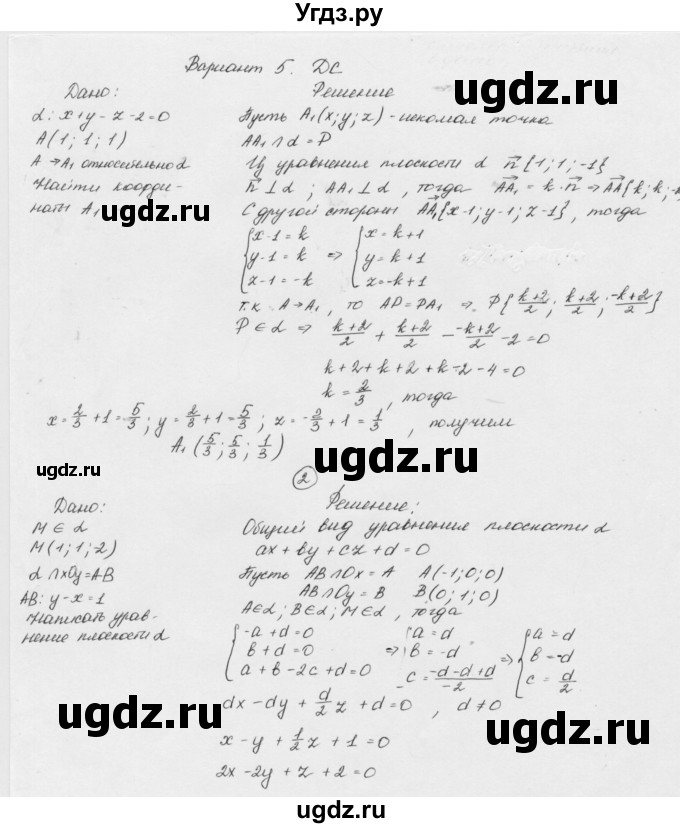 Угдз.ру
Вариант 5. ДС
Дано:
α: x+y-z-2=0
A(1; 1; 1)
A → A₁ относительно α
Найти координаты A₁
Решение
Пусть A₁(x; y; z) - искомая точка
AA₁ ∩ α = P
Из уравнения плоскости α n⃗{1; 1; -1}
n⃗ ⊥ α ; AA₁ ⊥ α , тогда AA₁ = k · n⃗ ⇒ AA₁{k; k; -k
С другой стороны AA₁{x-1; y-1; z-1} , тогда
{x-1=k {x=k+1
y-1=k ⇒ y=k+1
z-1=-k z=-k+1
т.к. A→A₁, то AP=PA₁ ⇒ P{(k+2)/2 ; (k+2)/2 ; (-k+2)/2}
P ∈ α ⇒ (k+2)/2 + (k+2)/2 - (-k+2)/2 - 2 = 0
k+2+k+2+k-2-4=0
k = 2/3 , тогда
x = 2/3 + 1 = 5/3 ; y = 2/3 + 1 = 5/3 ; z = -2/3 + 1 = 1/3 , получим
A₁(5/3 ; 5/3 ; 1/3)
ugdz.ru
2
Дано:
M ∈ α
M(1; 1; 2)
α ∩ xOy = AB
AB: y-x=1
Написать уравнение плоскости α
Решение:
Общий вид уравнения плоскости α
ax+by+cz+d=0
Пусть AB ∩ Ox = A A(-1; 0; 0)
AB ∩ Oy = B B(0; 1; 0)
A∈α; B∈α; M∈α, тогда
{-a+d=0 {a=d {a=d
b+d=0 ⇒ b=-d ⇒ b=-d
a+b-2c+d=0 c=(-d-d+d)/-2 c=d/2
dx-dy+d/2 z+d=0 , d≠0
x-y+1/2 z+1=0
2x-2y+z+2=0
ugdz.ru